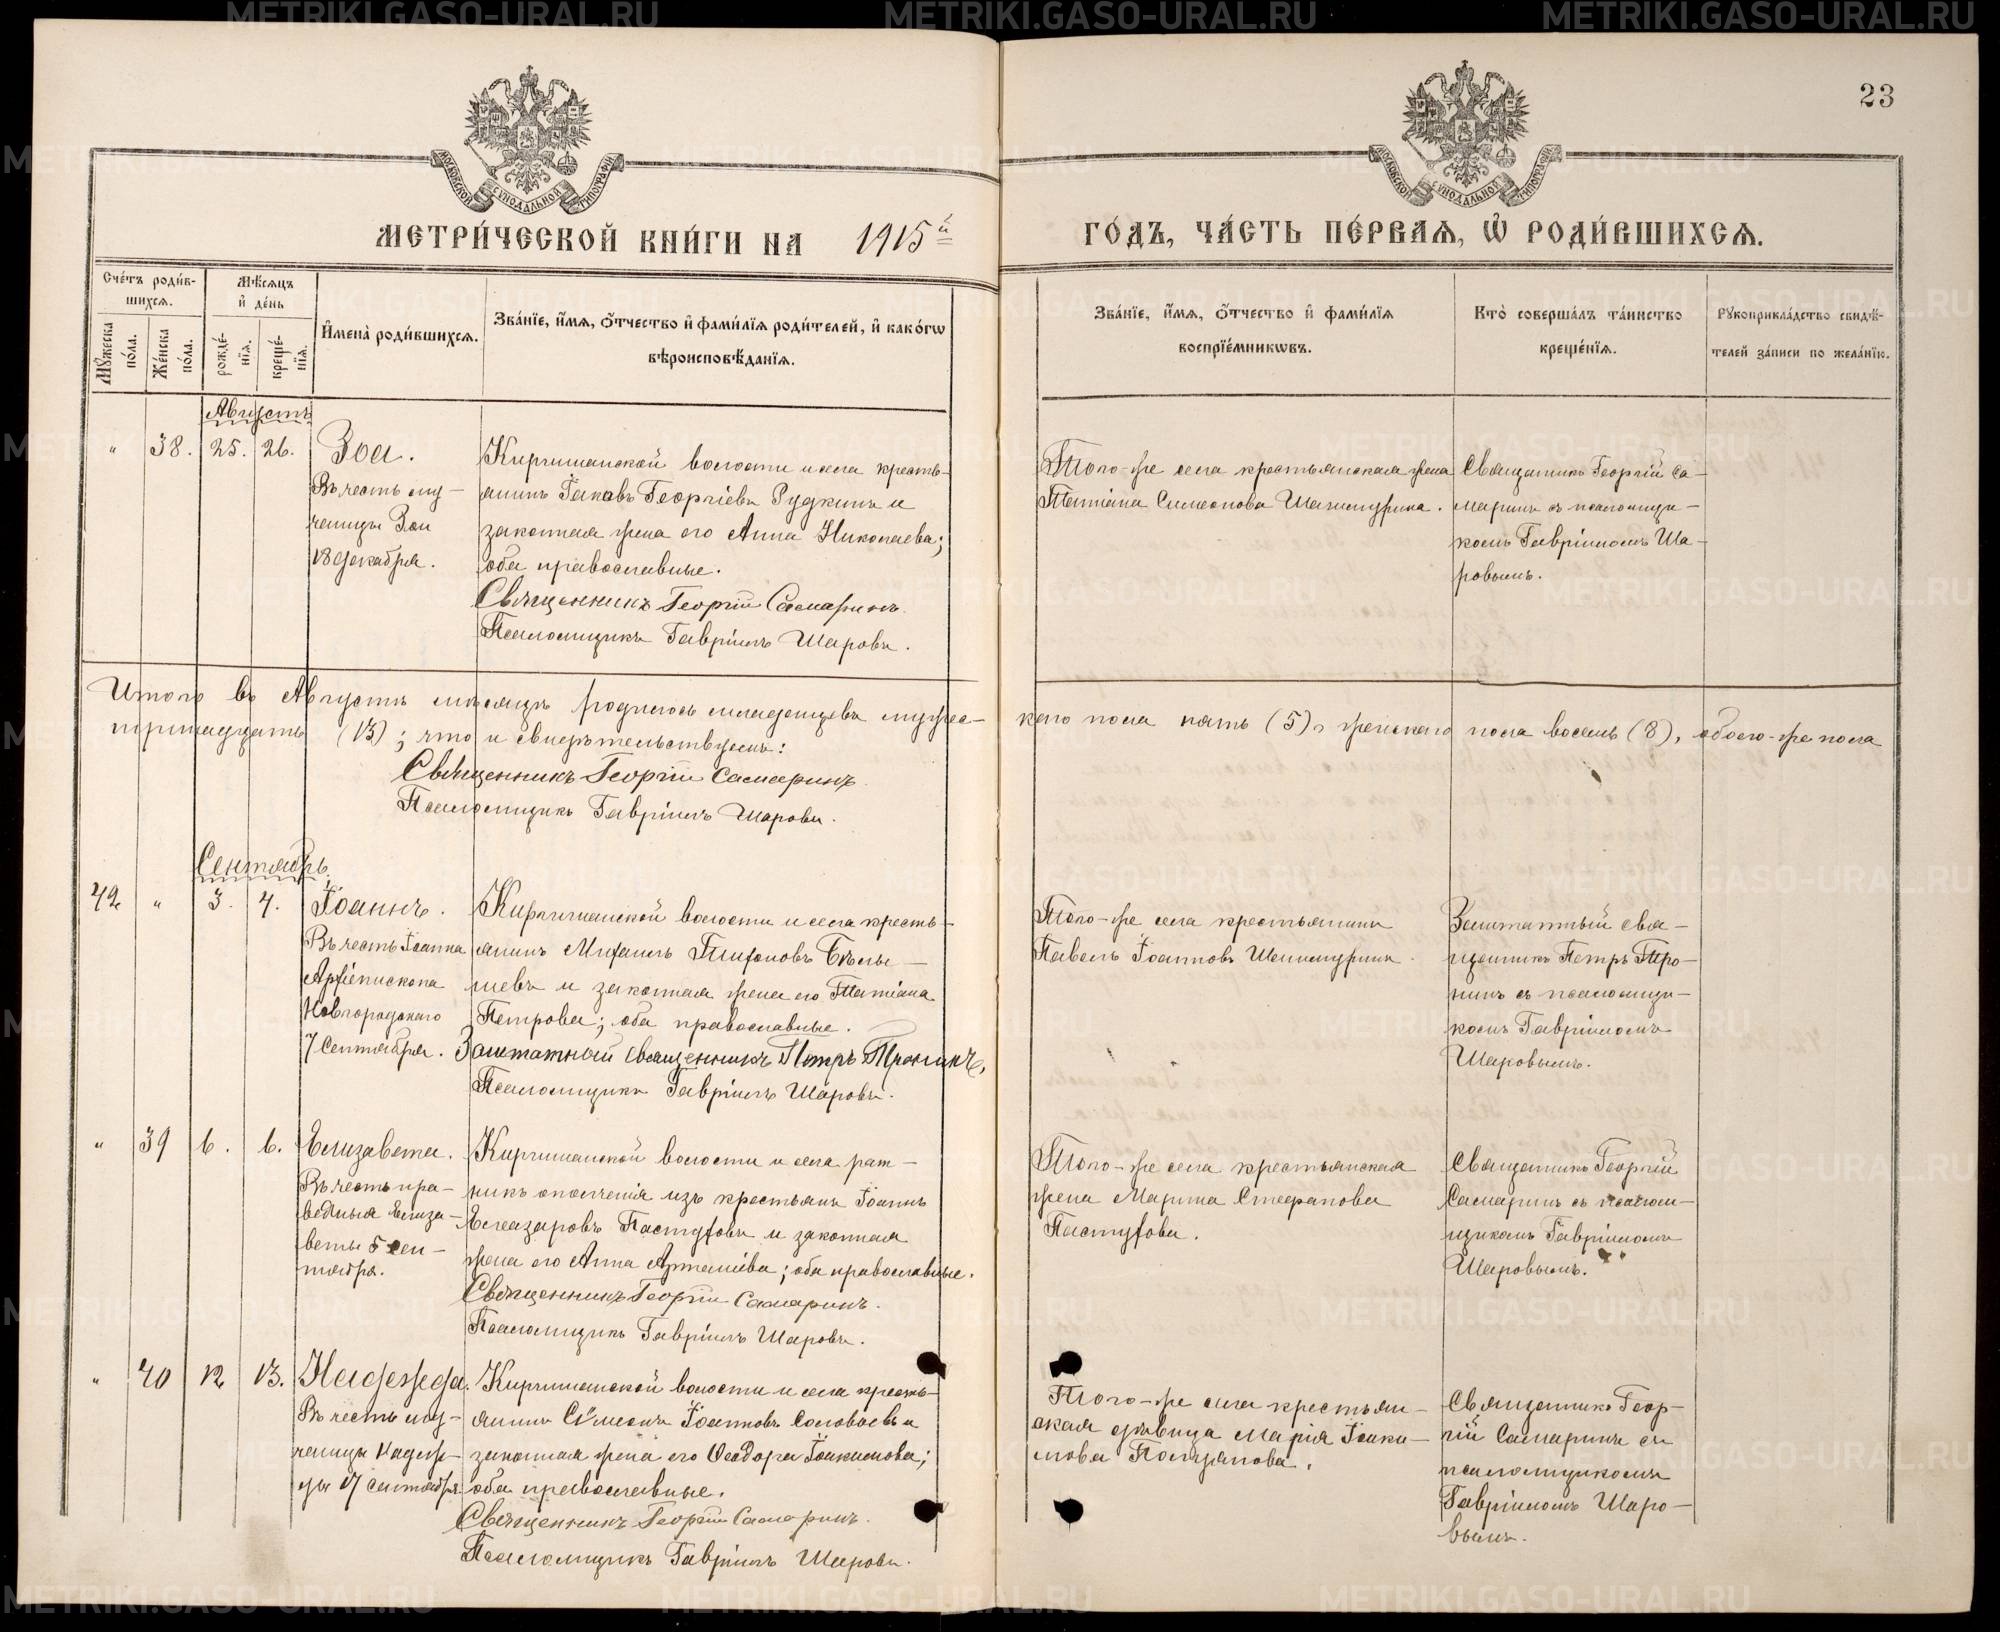 23
МОСКОВСКОЙ СѴНОДАЛЬНОЙ ТИПОГРАФІИ
МОСКОВСКОЙ СѴНОДАЛЬНОЙ ТИПОГРАФІИ
МЕТРИ́ЧЕСКОЙ КНИ́ГИ НА 1915й
ГО́ДЪ, ЧА́СТЬ ПЕ́РВАѦ, Ѡ҆ РОДИ́ВШИХСѦ.
Сче́тъ роди́в-
шихсѧ.
Мꙋ́жеска по́ла.
Же́нска по́ла.
Мѣ́сѧцъ
и҆ де́нь
рожде́-
нїѧ.
креще́-
нїѧ.
И҆мена̀ роди́вшихсѧ.
Зва́нїе, и҆́мѧ, ѻ҆́тчество и҆ фами́лїѧ роди́телей, и҆ како́гѡ
вѣроисповѣ́данїѧ.
Зва́нїе, и҆́мѧ, ѻ҆́тчество и҆ фами́лїѧ
воспрїе́мникѡвъ.
Кто̀ соверша́лъ та́инство
креще́нїѧ.
Рꙋкоприкла́дство свидѣ́-
телей за́писи по жела́нїю.
Августъ
" 38. 25. 26.
Зоя.
Въ честь му-
ченицы Зои
18 декабря.
Киргишанской волости и села кресть-
янинъ Іаковъ Георгіевъ Рудкинъ и
законная жена его Анна Николаева;
оба православные.
Священникъ Георгій Самаринъ.
Псаломщикъ Гавріилъ Шаровъ.
Того-же села крестьянская жена
Татіана Симеонова Шашмурина.
Священникъ Георгій Са-
маринъ съ псаломщи-
комъ Гавріиломъ Ша-
ровымъ.
Итого въ Августѣ мѣсяцѣ родилось младенцевъ мужес-
кого пола пять (5), женскаго пола восемь (8), обоего-же пола
тринадцать (13); что и свидѣтельствуемъ:
Священникъ Георгій Самаринъ.
Псаломщикъ Гавріилъ Шаровъ.
Сентябрь
42 " 3. 4.
Іоаннъ.
Въ честь Іоанна
Архіепископа
Новгородскаго
7 Сентября.
Киргишанской волости и села кресть-
янинъ Михаилъ Тихоновъ Бѣлы-
шевъ и законная жена его Татіана
Петрова; оба православные.
Заштатный Священникъ Петръ Тронинъ.
Псаломщикъ Гавріилъ Шаровъ.
Того-же села крестьянинъ
Павелъ Іоанновъ Шашмуринъ.
Заштатный свя-
щенникъ Петръ Тро-
нинъ съ псаломщи-
комъ Гавріиломъ
Шаровымъ.
" 39 6. 6.
Елизавета.
Въ честь пра-
ведныя Елиза-
веты 5 сен-
тября.
Киргишанской волости и села рат-
никъ ополченія изъ крестьянъ Іоаннъ
Елеазаровъ Пастуховъ и законная
жена его Анна Артеміева; оба православные.
Священникъ Георгій Самаринъ.
Псаломщикъ Гавріилъ Шаровъ.
Того-же села крестьянская
жена Марина Стефанова
Пастухова.
Священникъ Георгій
Самаринъ съ псалом-
щикомъ Гавріиломъ
Шаровымъ.
" 40 12 13.
Надежда.
Въ честь му-
ченицы Надеж-
ды 17 сентября.
Киргишанской волости и села кресть-
янинъ Сѵмеонъ Іоанновъ Соловьевъ и
законная жена его Ѳеодора Іоакимова;
оба православные.
Священникъ Георгій Самаринъ.
Псаломщикъ Гавріилъ Шаровъ.
Того-же села крестьян-
ская дѣвица Марія Іоаки-
мова
Священникъ Геор-
гій Самаринъ съ
псаломщикомъ
Гавріиломъ Шаро-
вымъ.
METRIKI.GASO-URAL.RU